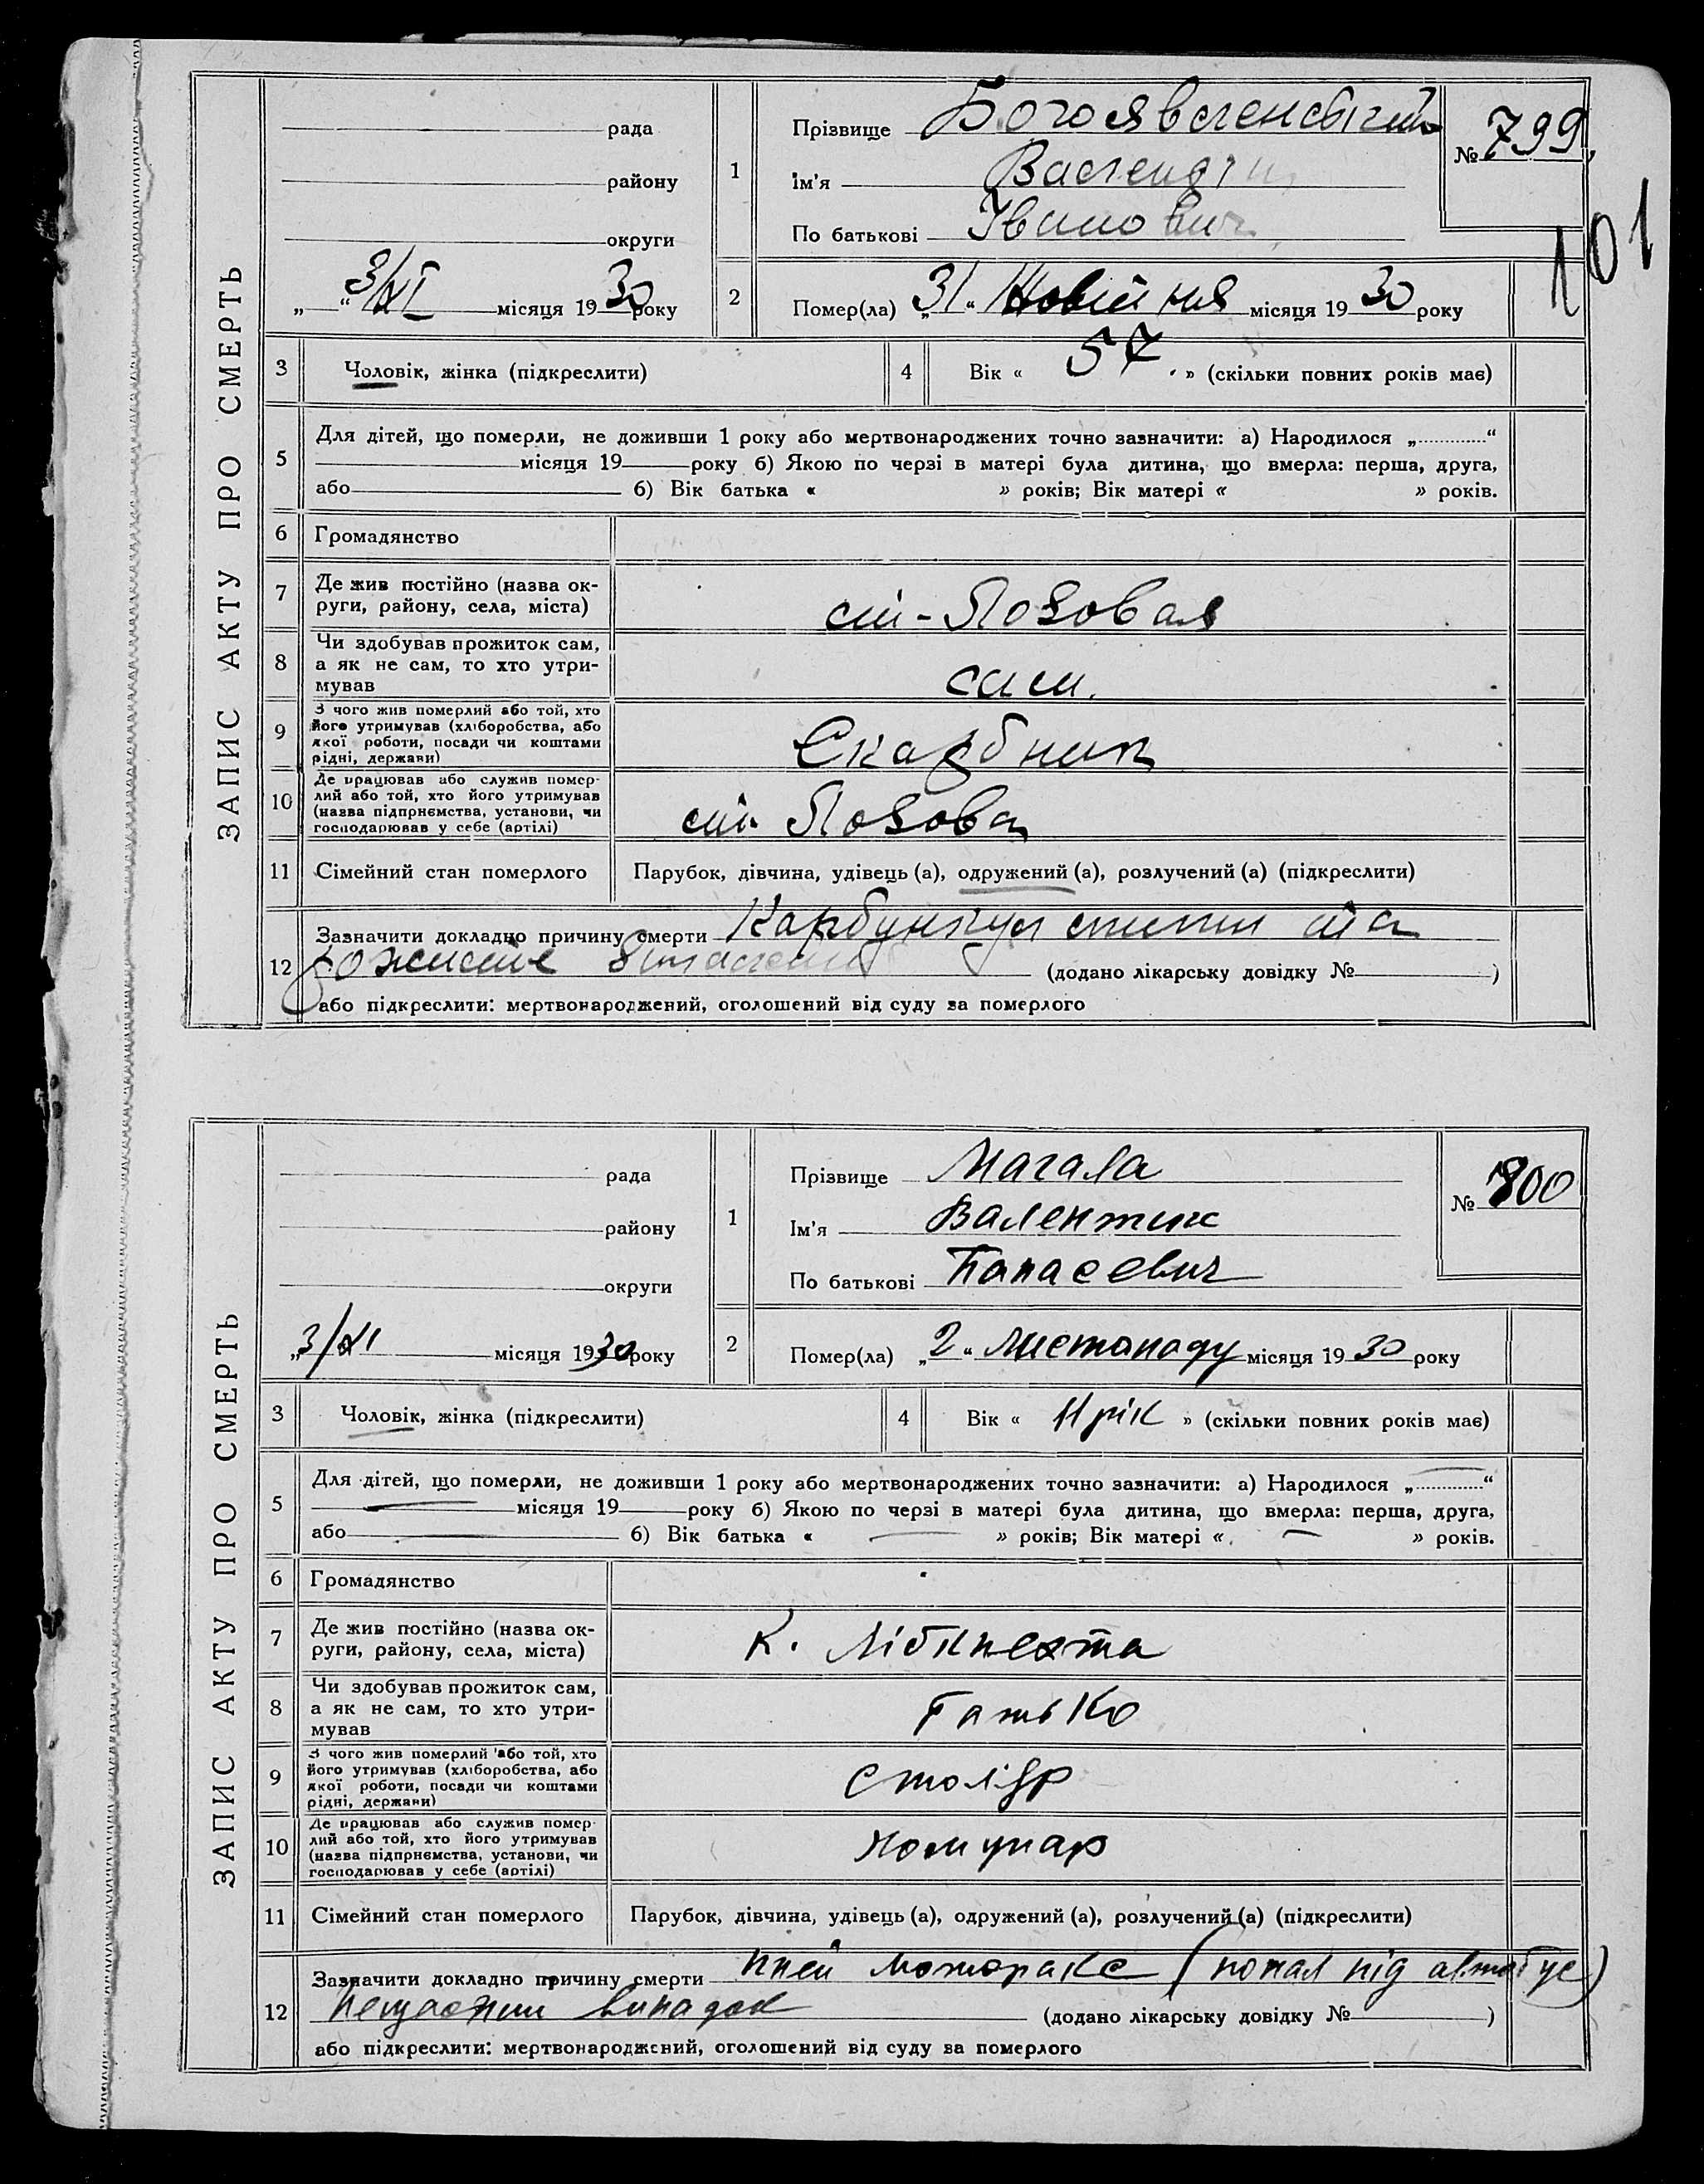 ЗАПИС АКТУ ПРО СМЕРТЬ
рада
району
округи
„ “ 3/XI місяця 1930 року
1
Прізвище Богоявленський
Ім'я
По батькові Іванович
№ 799
101
2
Помер(ла) „31“ Жовтня місяця 1930 року
3
Чоловік, жінка (підкреслити)
4
Вік « 57 » (скільки повних років має)
5
Для дітей, що померли, не доживши 1 року або мертвонароджених точно зазначити: а) Народилося „.............“
місяця 19 року б) Якою по черзі в матері була дитина, що вмерла: перша, друга,
або б) Вік батька « » років; Вік матері « » років.
6
Громадянство
7
Де жив постійно (назва ок-
руги, району, села, міста)
ст-Лозовая
8
Чи здобував прожиток сам,
а як не сам, то хто утри-
мував
сам.
9
З чого жив померлий або той, хто
його утримував (хліборобства, або
якої роботи, посади чи коштами
рідні, держави)
Скарбник
10
Де працював або служив помер-
лий або той, хто його утримував
(назва підприємства, установи, чи
господарював у себе (артілі)
ст. Лозова
11
Сімейний стан померлого
Парубок, дівчина, удівець (а), одружений (а), розлучений (а) (підкреслити)
12
Зазначити докладно причину смерти Карбункул спини та
рожисте запалення (додано лікарську довідку № )
або підкреслити: мертвонароджений, оголошений від суду за померлого
ЗАПИС АКТУ ПРО СМЕРТЬ
рада
району
округи
„3/XI місяця 1930 року
1
Прізвище Магала
Ім'я Валентин
По батькові Панасевич
№ 800
2
Помер(ла) „2“ листопаду місяця 1930 року
3
Чоловік, жінка (підкреслити)
4
Вік « 11 рік » (скільки повних років має)
5
Для дітей, що померли, не доживши 1 року або мертвонароджених точно зазначити: а) Народилося „.............“
місяця 19 року б) Якою по черзі в матері була дитина, що вмерла: перша, друга,
або б) Вік батька « » років; Вік матері « » років.
6
Громадянство
7
Де жив постійно (назва ок-
руги, району, села, міста)
К. Лібкнехта
8
Чи здобував прожиток сам,
а як не сам, то хто утри-
мував
батько
9
З чого жив померлий або той, хто
його утримував (хліборобства, або
якої роботи, посади чи коштами
рідні, держави)
столяр
10
Де працював або служив помер-
лий або той, хто його утримував
(назва підприємства, установи, чи
господарював у себе (артілі)
Комунар
11
Сімейний стан померлого
Парубок, дівчина, удівець (а), одружений (а), розлучений (а) (підкреслити)
12
Зазначити докладно причину смерти (попал під автобус)
нещасний випадок (додано лікарську довідку № )
або підкреслити: мертвонароджений, оголошений від суду за померлого